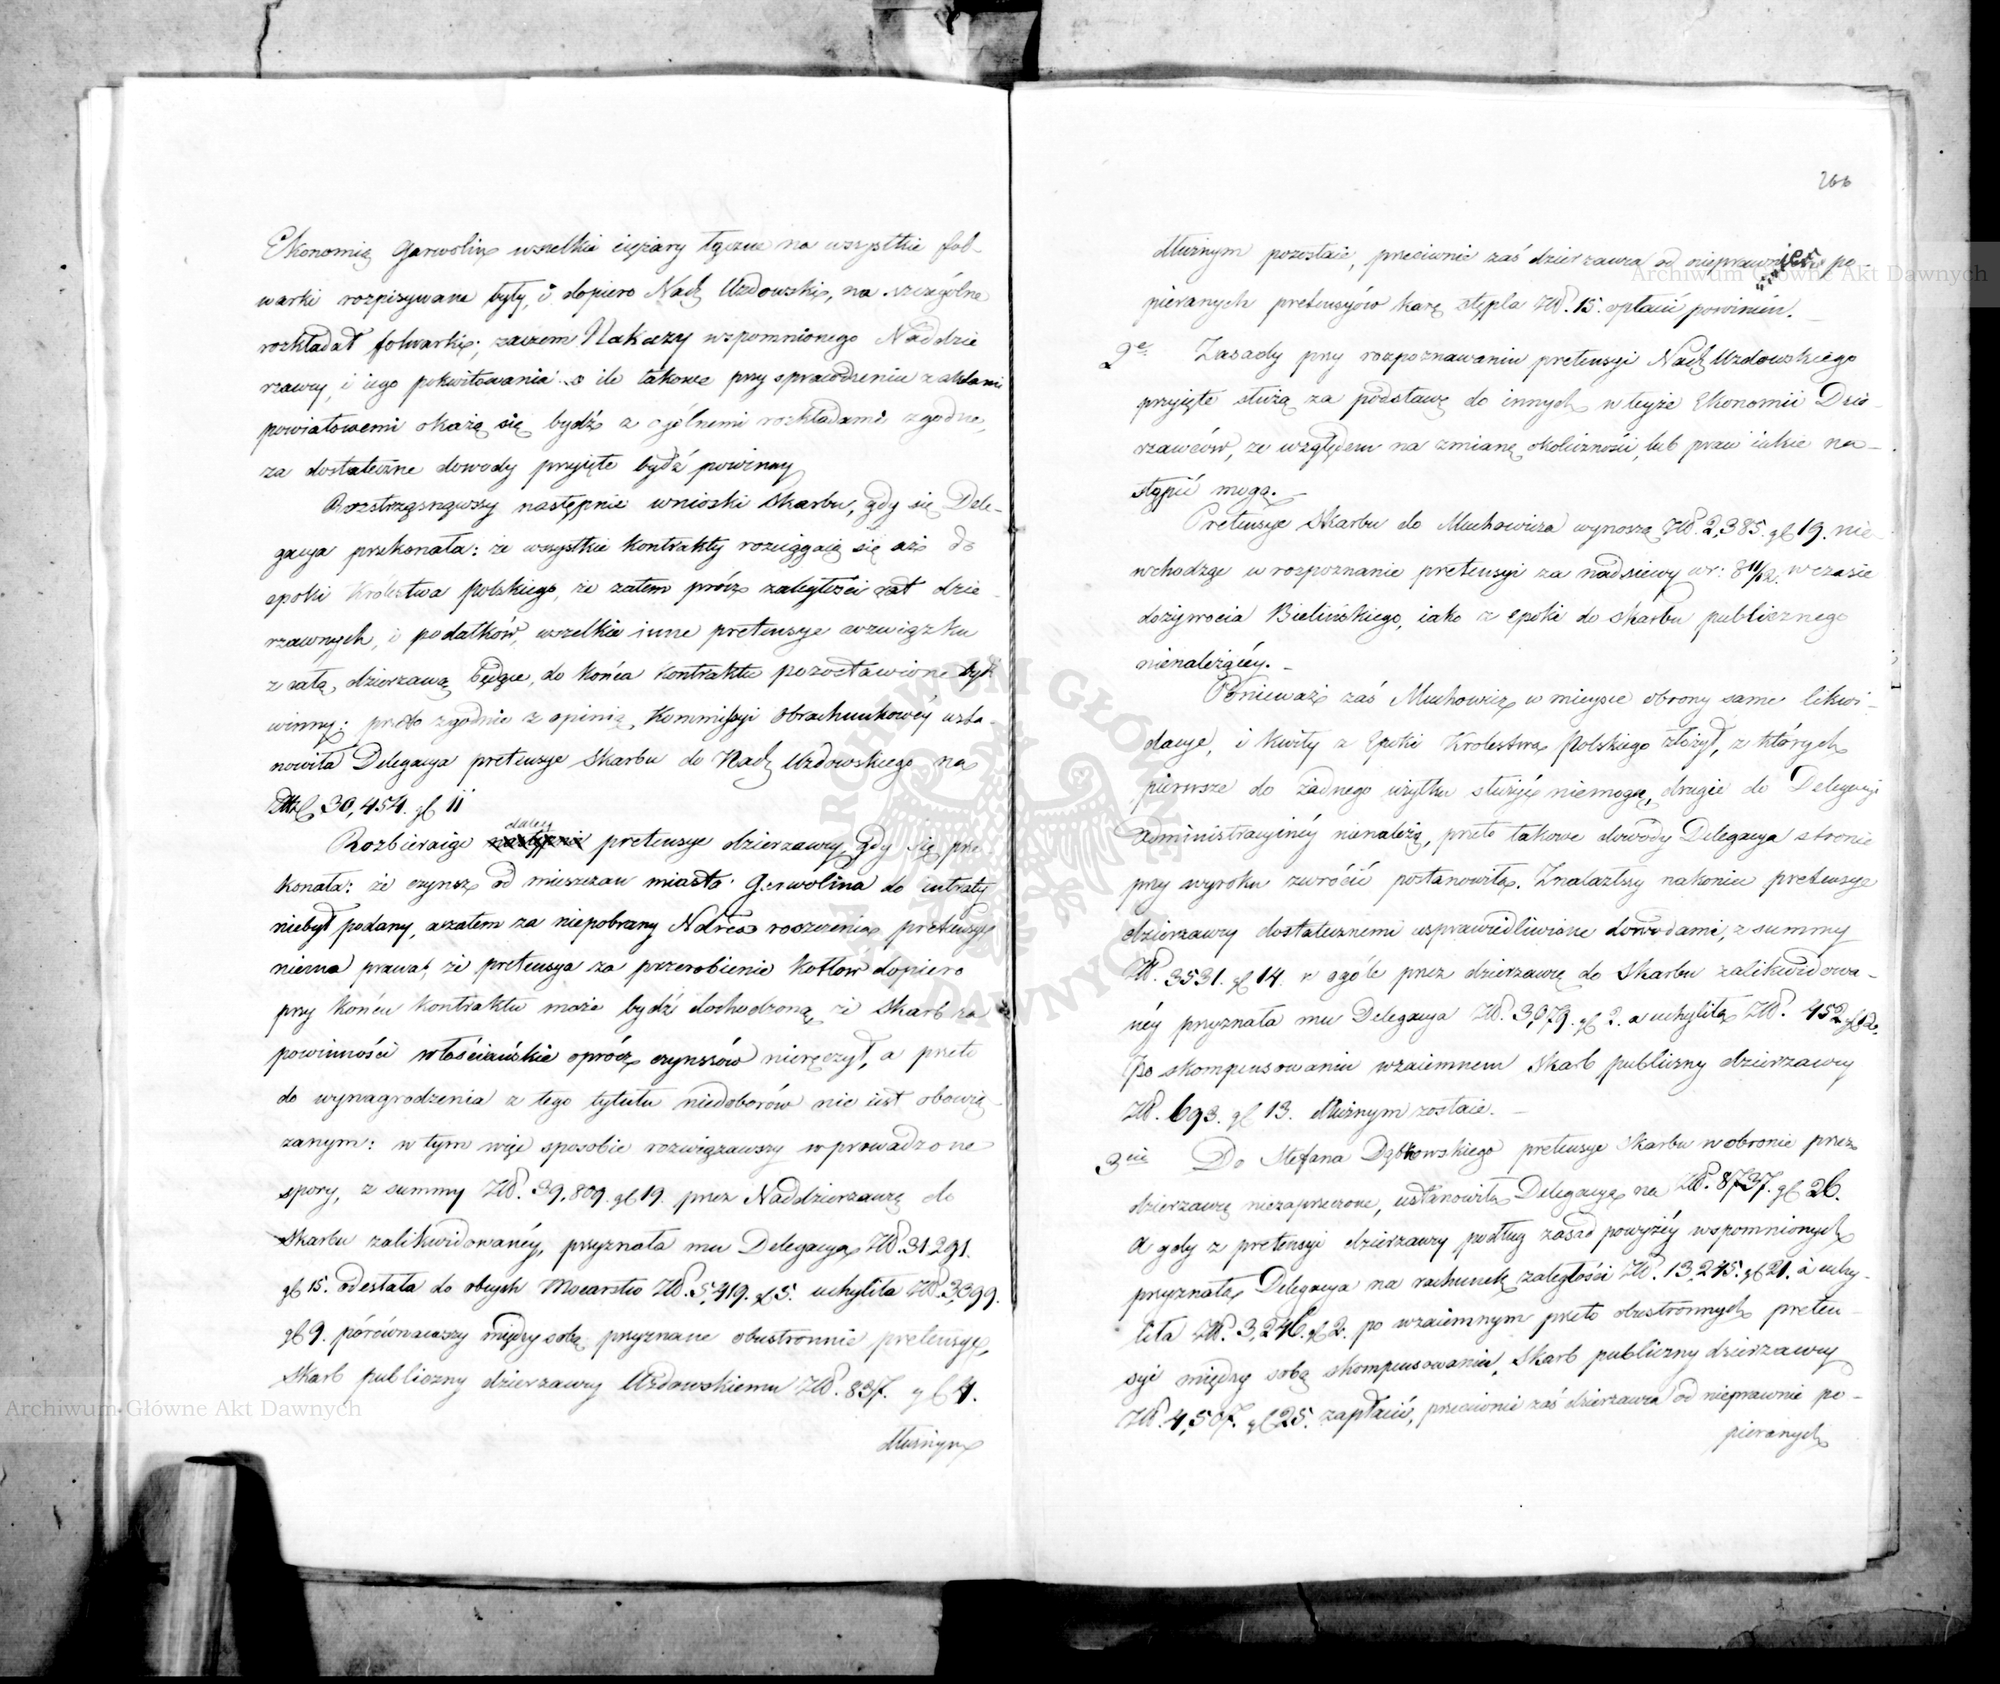 Ekonomię Garwolin wszelkie ciężary łącznie na wszystkie fol-
warki rozpisywane były, i dopiero Nadz Uzdowski, na szczególne
rozkładał folwarki; zaczem Nakazy wspomnionego Naddzie
rzawcy, i iego pokwitowania o ile takowe przy sprawdzeniu z aktami
powiatowemi okażą się bydź z ogólnemi rozkładami zgodne,
za dostateczne dowody przyięte bydź powinny
Rozstrząsnąwszy następnie wnioski Skarbu, gdy się Dele-
gacya przekonała: że wszystkie kontrakty rozciągaią się aż do
epoki Królestwa Polskiego, że zatem prócz zaległości rat dzie-
rzawnych, i podatków, wszelkie inne pretensye w związku
z ratą dzierzawną będące, do końca kontraktu pozostawione być
winny; przeto zgodnie z opinią Kommissyi Obrachunkowéy usta-
nowiła Delegacya pretensye Skarbu do Nadz Uzdowskiego na
Złł 30,454. gl 11
daley
Rozbieraiąc pretensye dzierzawcy, gdy się prze
konała: że czynsz od mieszczan miasta Garwolina do intraty
niebył podany, a zatem za niepobrany Nadzca roszczenia pretensyi
niema prawa, że pretensya za przerobienie kotłów dopiero
przy końcu kontraktu może bydź dochodzoną, że Skarb za
powinności włościańskie oprócz czynszów nieręczył, a przeto
do wynagrodzenia z tego tytułu niedoborów nie iest obowią-
zanym: w tym więc sposobie rozwiązawszy wprowadzone
spory, z summy Złł. 39,809. gl 19. przez Naddzierzawcę do
Skarbu zalikwidowanéy, przyznała mu Delegacya Złł. 31,291.
gl 15. odesłała do obcych Mocarstw Złł. 5,419. gl 5. uchyliła Złł. 3,099.
gl 9. porównawszy między sobą przyznane obustronnie pretensye,
Skarb publiczny dzierzawcy Uzdowskiemu Złł. 837. gl 4.
dłużnym
266
dłużnym pozostaie, przeciwnie zaś dzierzawca od nieprawnie po-
pieranych pretensyów karę stępla Złł. 15. opłacić powinien.
2e Zasady przy rozpoznawaniu pretensyi Nadz Uzdowskiego
przyięte służą za podstawę do innych w teyże Ekonomii Dzie-
rzawców, ze względem na zmianę okoliczności, lub praw iakie na-
stąpić mogą.
Pretensye Skarbu do Muchowicza wynoszą Złł. 2,385. gl 19. nie
wchodząc w rozpoznanie pretensyi za nadsiewy wr: 811/12. w czasie
dożywocia Bielińskiego, iako z epoki do skarbu publicznego
nienależącéy.
Ponieważ zaś Muchowicz w mieysce obrony same likwi-
dacye, i kwity z Epoki Krolestwa Polskiego złożył, z których
pierwsze do żadnego użytku służyć niemogą, drugie do Delegacyi
administracyinéy nienależą, przeto takowe dowody Delegacya stronie
przy wyroku zwrócić postanowiła. Znalazłszy nakoniec pretensye
dzierzawcy dostatecznemi usprawiedliwione dowodami, z summy
Złł. 3531. gl 14. w ogóle przez dzierzawcę do Skarbu zalikwidowa-
néy przyznała mu Delegacya Złł. 3,079. gl 2. a uchyliła Złł. 452 gl 12.
Po skompensowaniu wzaiemnem Skarb publiczny dzierzawcy
Złł. 693. gl 13. dłużnym zostaie.
3cie Do Stefana Dąbkowskiego pretensye Skarbu w obronie przez
dzierzawcę niezaprzeczone, ustanowiła Delegacya na Złł. 8737. gl 26.
A gdy z pretensyi dzierzawcy podług zasad powyżéy wspomnionych
przyznała Delegacya na rachunek zaległości Złł. 13,245. gl 21. a uchy-
liła Złł. 3,246. gl 2. po wzaiemnym przeto obustronnych preten-
syi między sobą skompensowaniu, Skarb publiczny dzierzawcy
Złł. 4,507. gl 25. zapłacić, przeciwnie zaś dzierzawca od nieprawnie po-
pieranych
Archiwum Główne Akt Dawnych
Archiwum Główne Akt Dawnych
ARCHIWUM GŁÓWNE AKT DAWNYCH